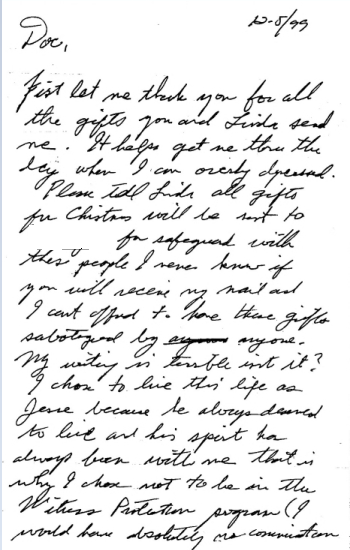 12-5/99
Doc,
First let me thank you for all
the gifts you and Linda send
me. It helps get me thru the
day when I am overly dpressed.
Please tell Linda all gifts
for Christmas will be sent to
for safeguard with
these people I never know if
you will receive my mail and
I cant afford to have these gifts
sabotaged by anyone.
My writing is terrible isnt it?
I chose to live this life as
Jesse because he always deserved
to live and his spirit has
always been with me that is
why I chose not to be in the
Witness Protection program (I
would have absolutely no communication